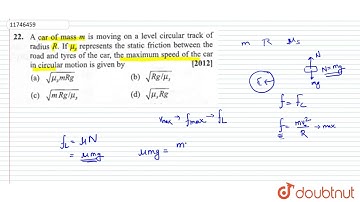 11746459
22. A car of mass m is moving on a level circular track of
radius R. If μs represents the static friction between the
road and tyres of the car, the maximum speed of the car
in circular motion is given by [2012]
(a) √μsmRg (b) √Rg/μs
(c) √mRg/μs (d) √μsRg
m R μs
N
N=mg
mg
f = fc
f = mv²/R → max
vmax → fmax → fL
fL = μN
= μmg
μmg = m
doubtnut